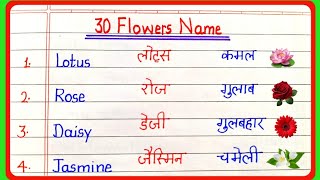 30 Flowers Name
1. Lotus लोट्स कमल
2. Rose रोज गुलाब
3. Daisy डेजी गुलबहार
4. Jasmine जैस्मिन चमेली